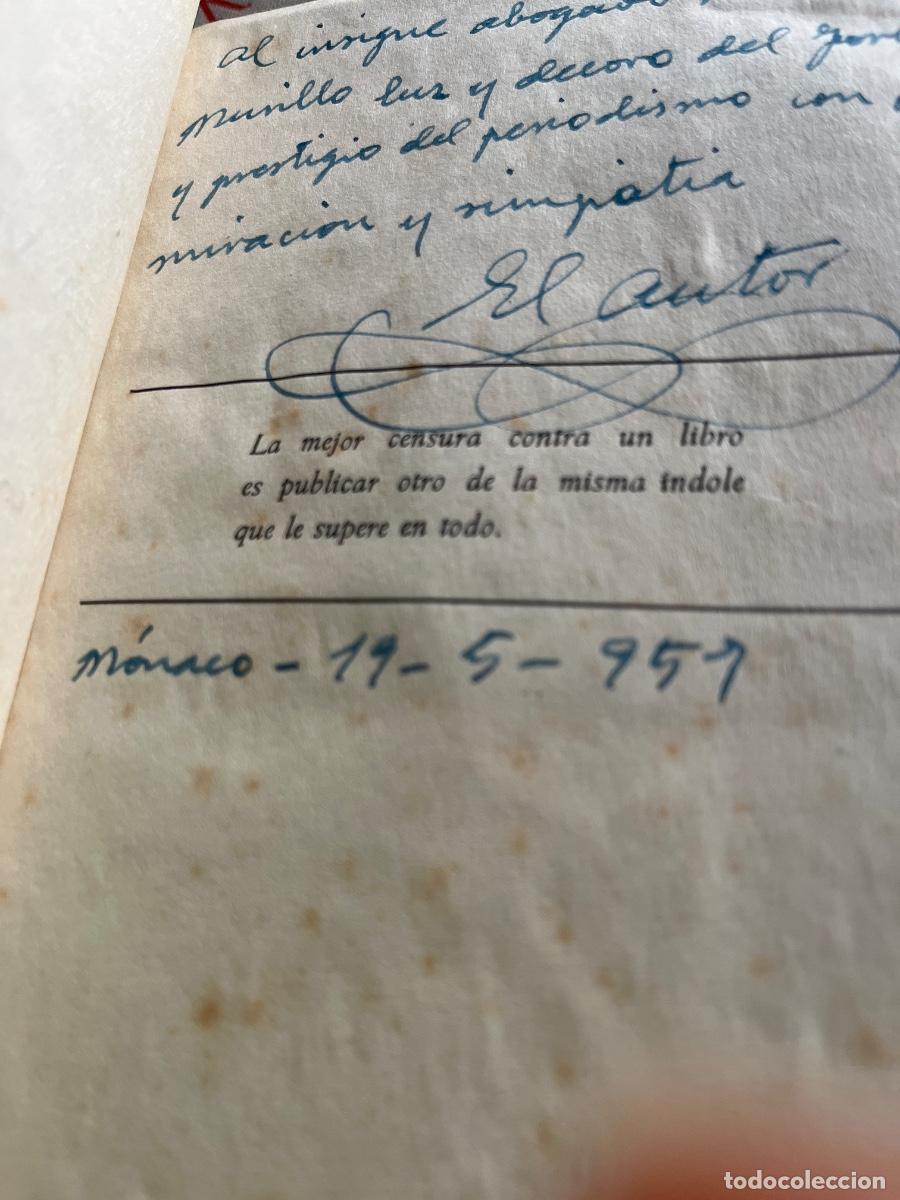 al insigne abogado
Murillo luz y decoro del
y prestigio del periodismo con
miracion y simpatia
El autor
La mejor censura contra un libro
es publicar otro de la misma índole
que le supere en todo.
Mónaco - 19 - 5 - 957
todocoleccion